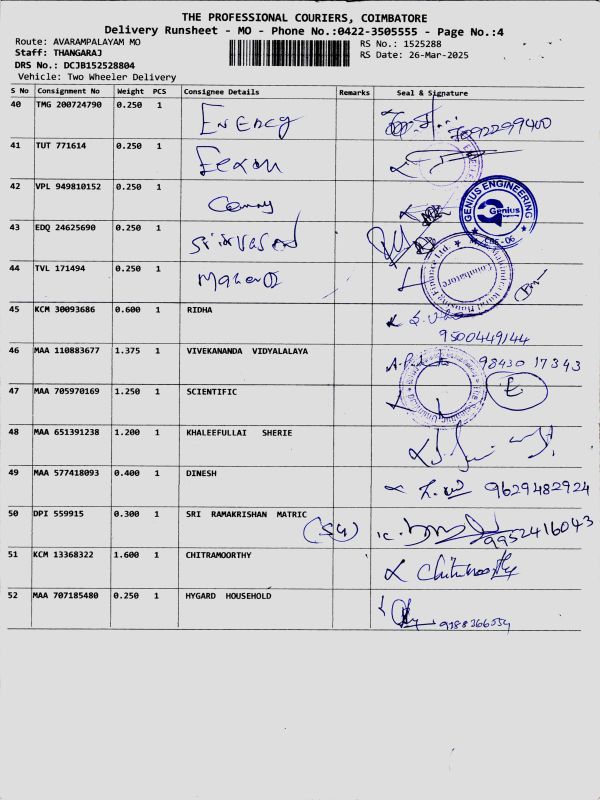 THE PROFESSIONAL COURIERS, COIMBATORE
Delivery Runsheet - MO - Phone No.:0422-3505555 - Page No.:4
Route: AVARAMPALAYAM MO
RS No.: 1525288
Staff: THANGARAJ
RS Date: 26-Mar-2025
DRS No.: DCJB152528804
Vehicle: Two Wheeler Delivery
S No Consignment No Weight PCS Consignee Details Remarks Seal & Signature
40 TMG 200724790 0.250 1 Energy
41 TUT 771614 0.250 1
42 VPL 949810152 0.250 1
GENIUS ENGINEERING Genius CBE-06
43 EDQ 24625690 0.250 1
44 TVL 171494 0.250 1
Mahindra Rural Housing Finance Ltd. Coimbatore
45 KCM 30093686 0.600 1 RIDHA
9500449144
46 MAA 110883677 1.375 1 VIVEKANANDA VIDYALALAYA 98430 17343
47 MAA 705970169 1.250 1 SCIENTIFIC E
48 MAA 651391238 1.200 1 KHALEEFULLAI SHERIE
49 MAA 577418093 0.400 1 DINESH 9629482924
50 DPI 559915 0.300 1 SRI RAMAKRISHAN MATRIC
9952416043
51 KCM 13368322 1.600 1 CHITRAMOORTHY
52 MAA 707185480 0.250 1 HYGARD HOUSEHOLD